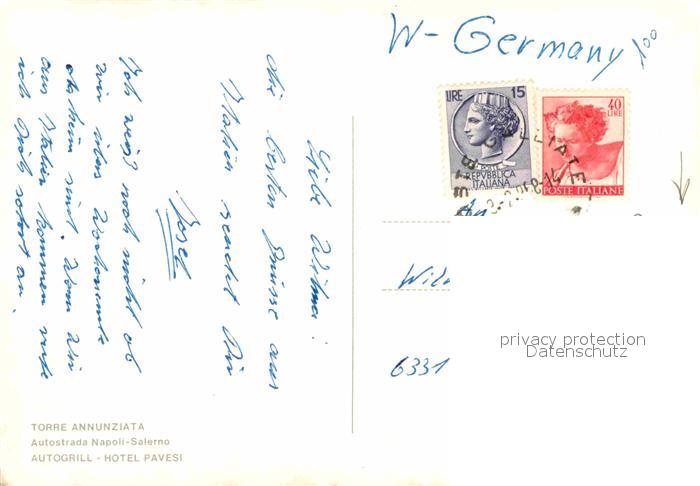 W-Germany
Liebe Wilma!
die besten Grüsse aus
Italien sendet Dir
Josef
Ich weiß noch nicht ob
wir übers Wochenende
daheim sind. Wenn wir
aus Italien kommen rufe
ich Dich sofort an.
LIRE 15
POSTE
REPVBBLICA
ITALIANA
40
LIRE
POSTE ITALIANE
An
6331
privacy protection
Datenschutz
TORRE ANNUNZIATA
Autostrada Napoli-Salerno
AUTOGRILL - HOTEL PAVESI